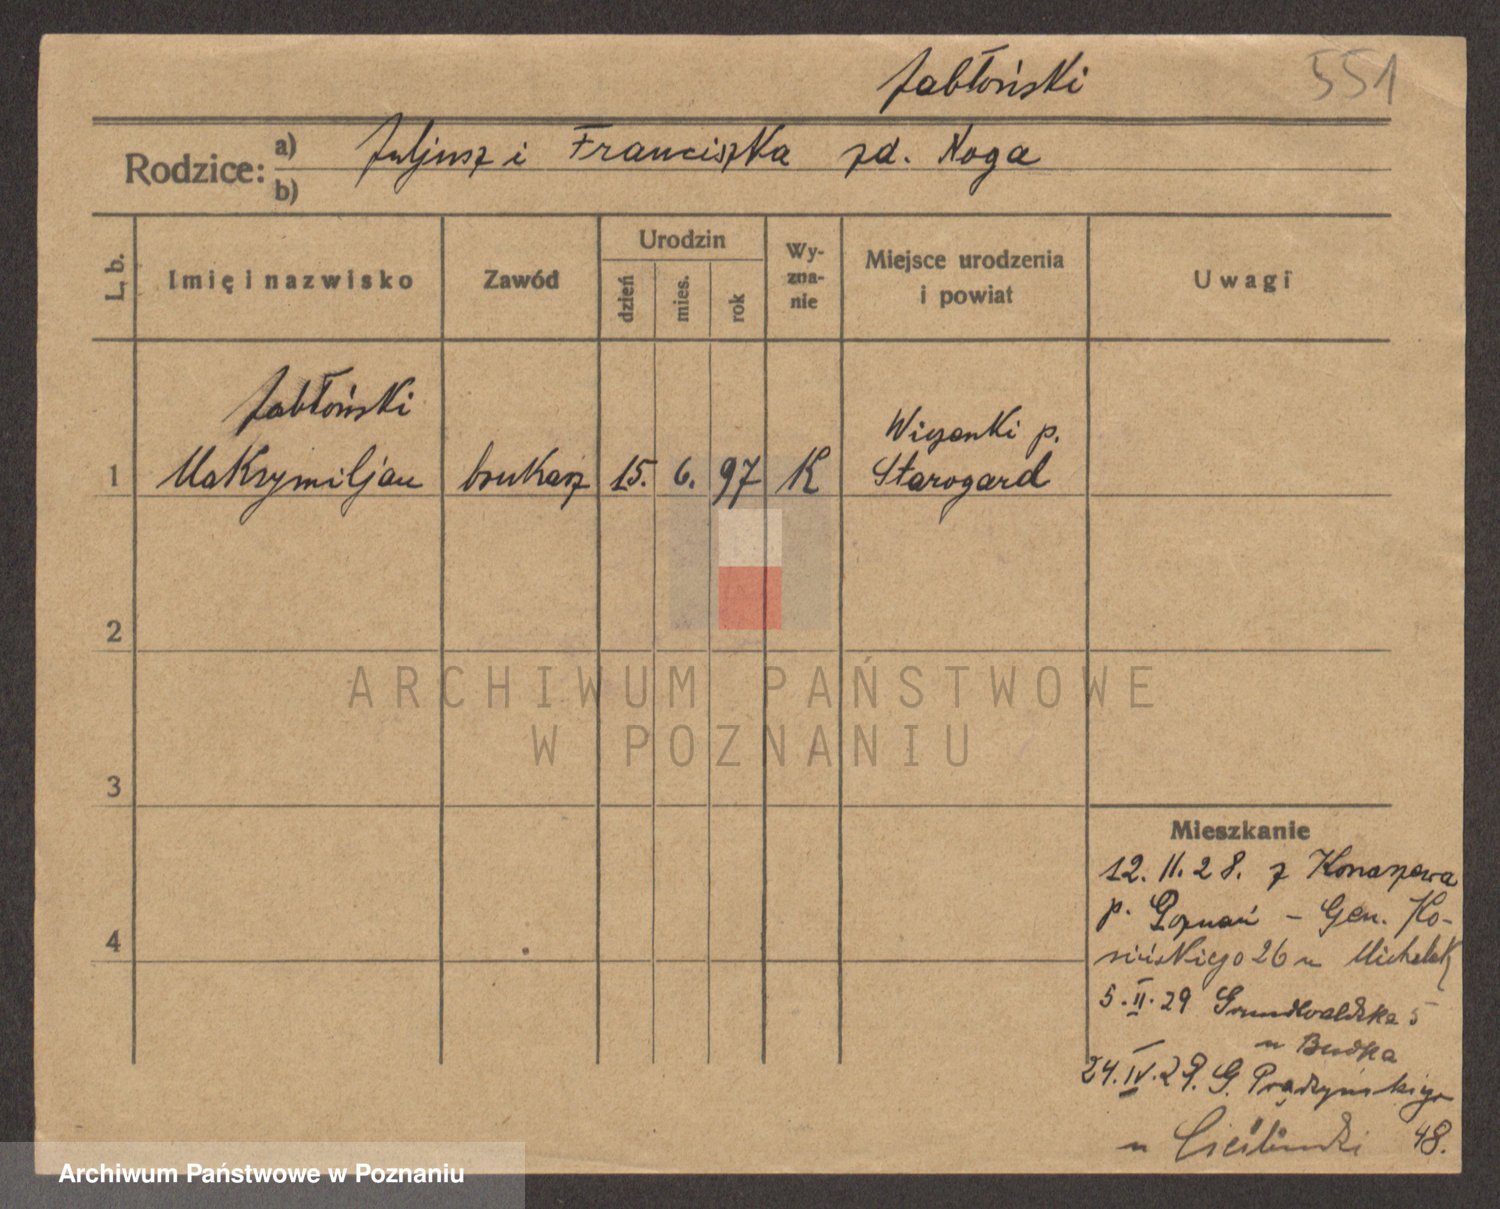 Jabłoński
551
Rodzice: a) Juljusz i Franciszka zd. Noga
b)
L. b.
Imię i nazwisko
Zawód
Urodzin
dzień
mies.
rok
Wy-
zna-
nie
Miejsce urodzenia
i powiat
Uwagi
Jabłoński
1 Maksymiljan brukarz 15. 6. 97 K
p.
Starogard
2
3
4
Mieszkanie
12. II. 28. z Konarzewa
p. Poznań – Gen. Ko-
sińskiego 26 u Michalak
5.II.29 Grundwaldzka 5
u Budka
24.IV.29. G. Prądzyńskiego
u 48.
ARCHIWUM PAŃSTWOWE
W POZNANIU
Archiwum Państwowe w Poznaniu